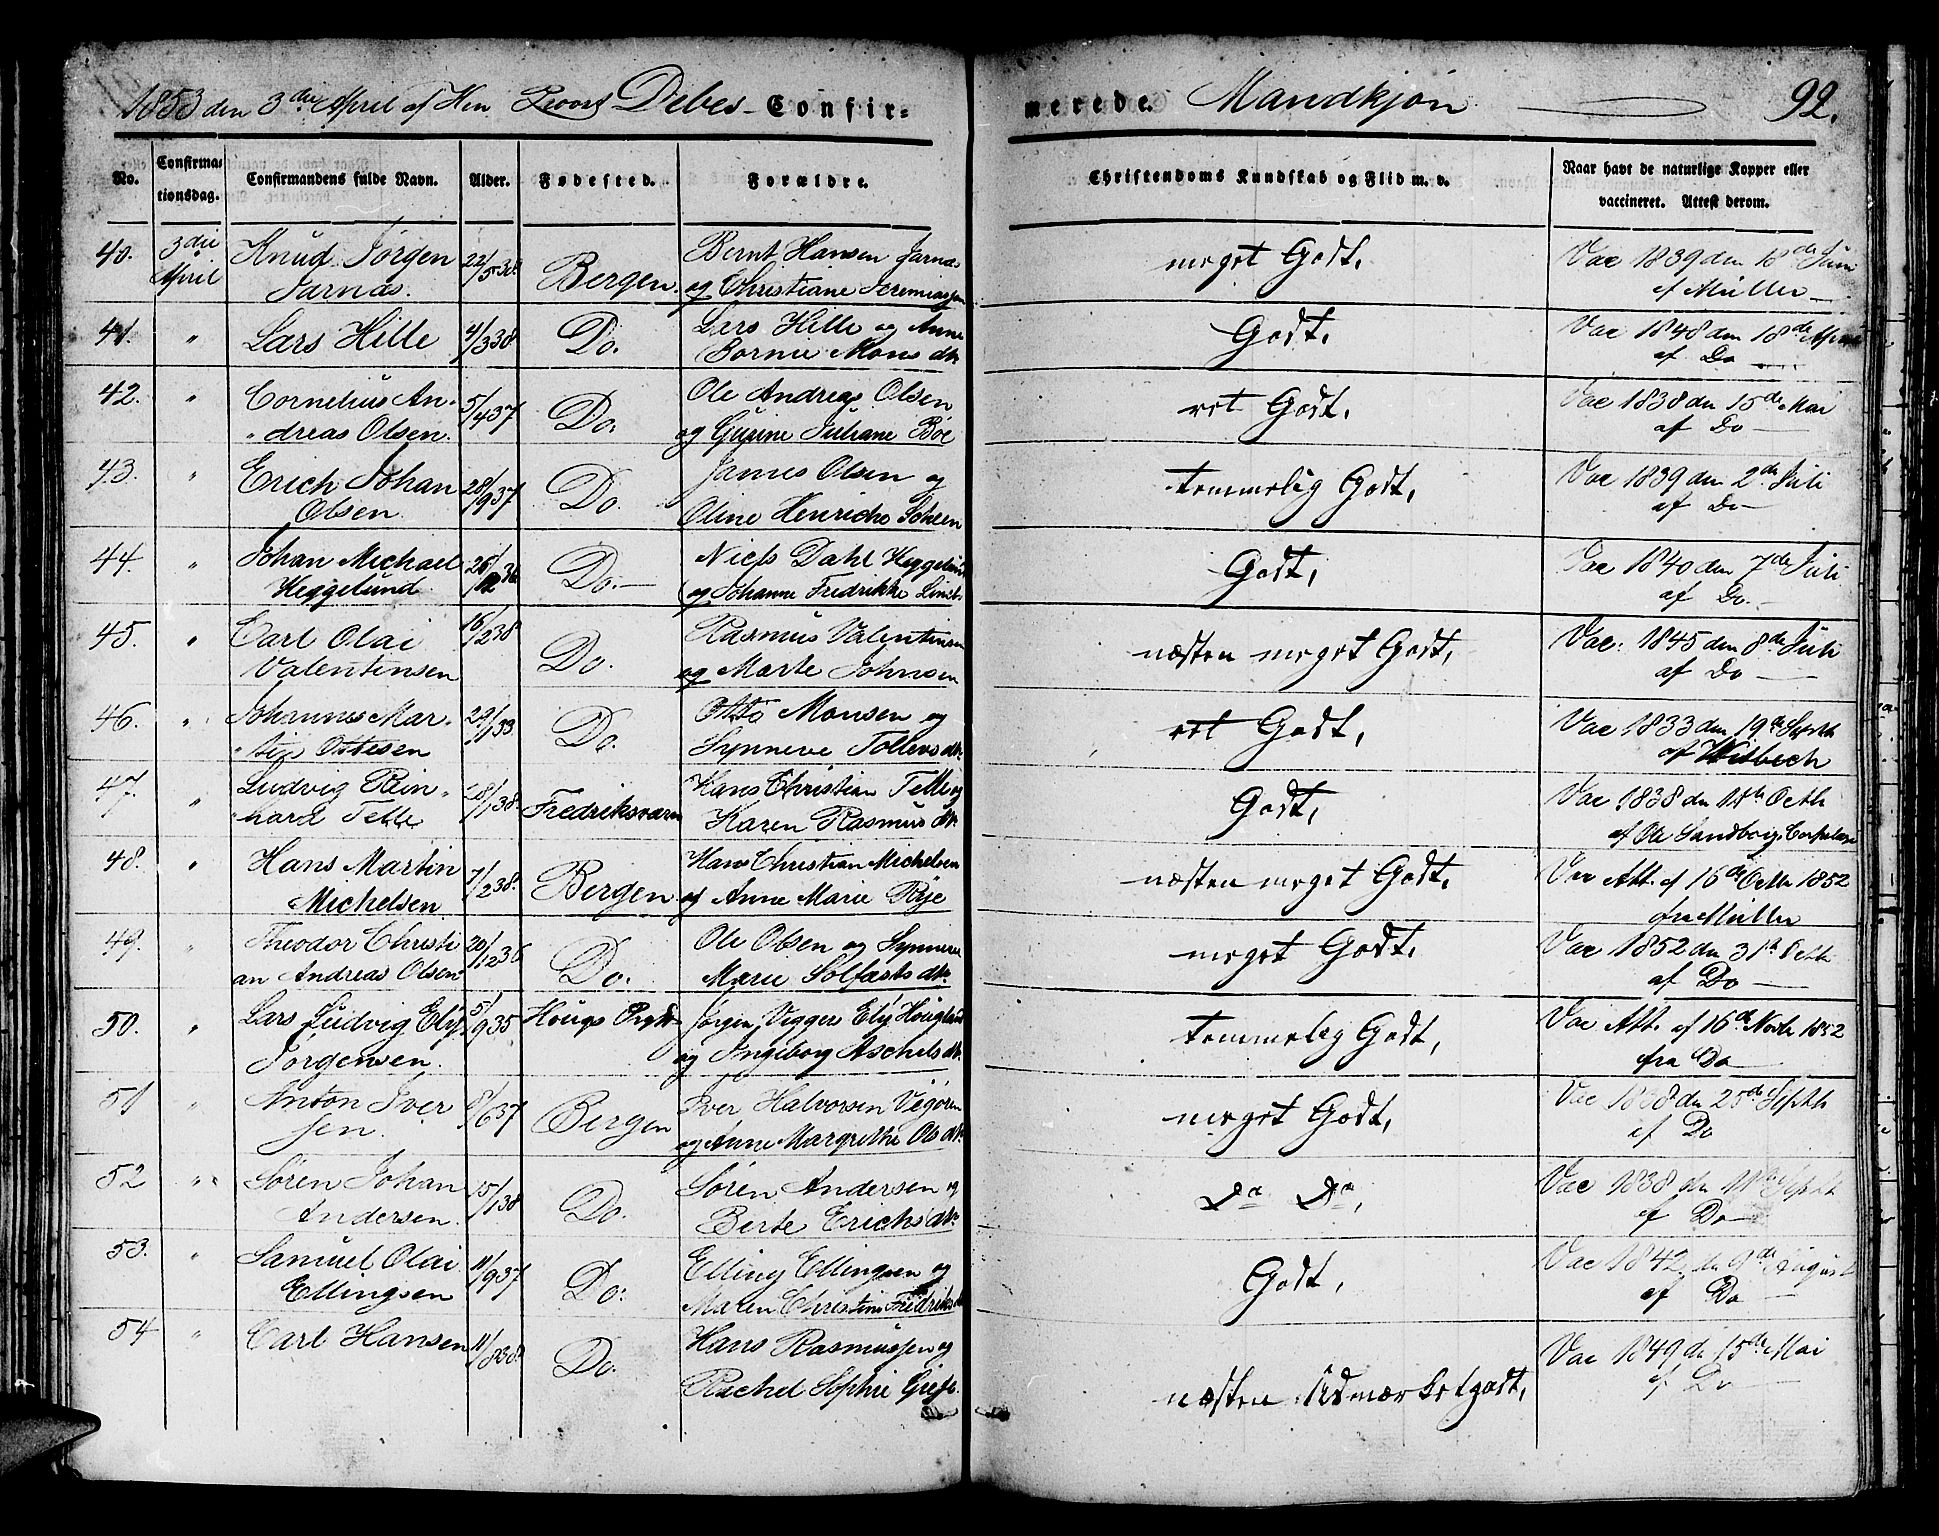 1853 den 3die April af Hrr. Provst Debes - Confir-
merede Mandkjøn 92.
No. Confirmationsdag. Confirmandens fulde Navn. Alder. Fødested. Forældre. Christendoms Kundskab og Flid m. v. Naar havt de naturlige Kopper eller vaccineret. Attest derom.
40. 3die April Knud Jørgen Jarnæs. 22/5 38 Bergen. Bernt Hansen Jarnæs og Christiane Jeremiasen meget Godt. Vac 1839 den 18de Juni af Müller
41. " Lars Hille 4/3 38 Do. Lars Hille og Anne Bornie Mons dtr. Godt. Vac 1848 den 18de April af Do
42. " Cornelius Andreas Olsen. 5/4 37 Do. Ole Andreas Olsen og Gurine Juliane Böe ret Godt. Vac 1838 den 15de Mai af Do
43. " Erich Johan Olsen 28/9 37 Do. James Olsen og Oline Henriche Scheen temmelig Godt. Vac 1839 den 2de Juli af Do
44. " Johan Michael Heggelund. 26/12 36 Do. Niels Dahl Heggelund og Johanne Fredrikke Godt. Vac 1840 den 7de Juli af Do.
45. " Carl Olai Valentinsen 16/2 38 Do. Rasmus Valentinsen og Marte Johnsen næsten meget Godt. Vac: 1845 den 8de Juli af Do
46. " Johannes Martin Ottesen 29/1 33 Do. Otto Monsen og Synneve Tollevs dtr. ret Godt. Vac 1833 den 19de Septb af Wisbech
47. " Ludvig Reinhard Telle 28/1 38 Fredriksværn Hans Christian Telle og Karen Rasmus dtr. Godt. Vac 1838 den 11te Octb af Ole Sandborg,
48. " Hans Martin Michelsen 7/2 38. Bergen Hans Christian Michelsen og Anne Marie Rye næsten meget Godt. Vac Att. af 16de Octb 1852 fra Müller
49. " Theodor Christian Andreas Olsen 20/12 36 Do. Ole Olsen og Synneve Marie Solfæsts dtr. meget Godt. Vac 1852 den 31te Octb af Do
50. " Lars Ludvig Ely Jørgensen. 5/9 35 Hougs Prgld Jørgen Viggers Ely Hougland og Ingeborg Aschels dtr. temmelig Godt. Vac Att. af 16de Novb 1852 fra Do
51 " Anton Iversen. 8/6 37 Bergen Iver Halvorsen Vigøren og Anne Margrethe Ols dtr. meget Godt. Vac 1838 den 25de Septb af Do
52 " Søren Johan Andersen. 15/1 38 Do. Søren Andersen og Berte Erichs dtr Do Do. Vac 1838 den 11te Septb af Do
53. " Samuel Olai Ellingsen 11/9 37 Do. Elling Ellingsen og Maren Christine Fredriks dtr Godt. Vac 1842 den 9de August af Do
54 " Carl Hansen 11/8 38 Do. Hans Rasmussen og Rachel Sophie næsten Udmærketgodt. Vac 1849 de 15de Mai af Do